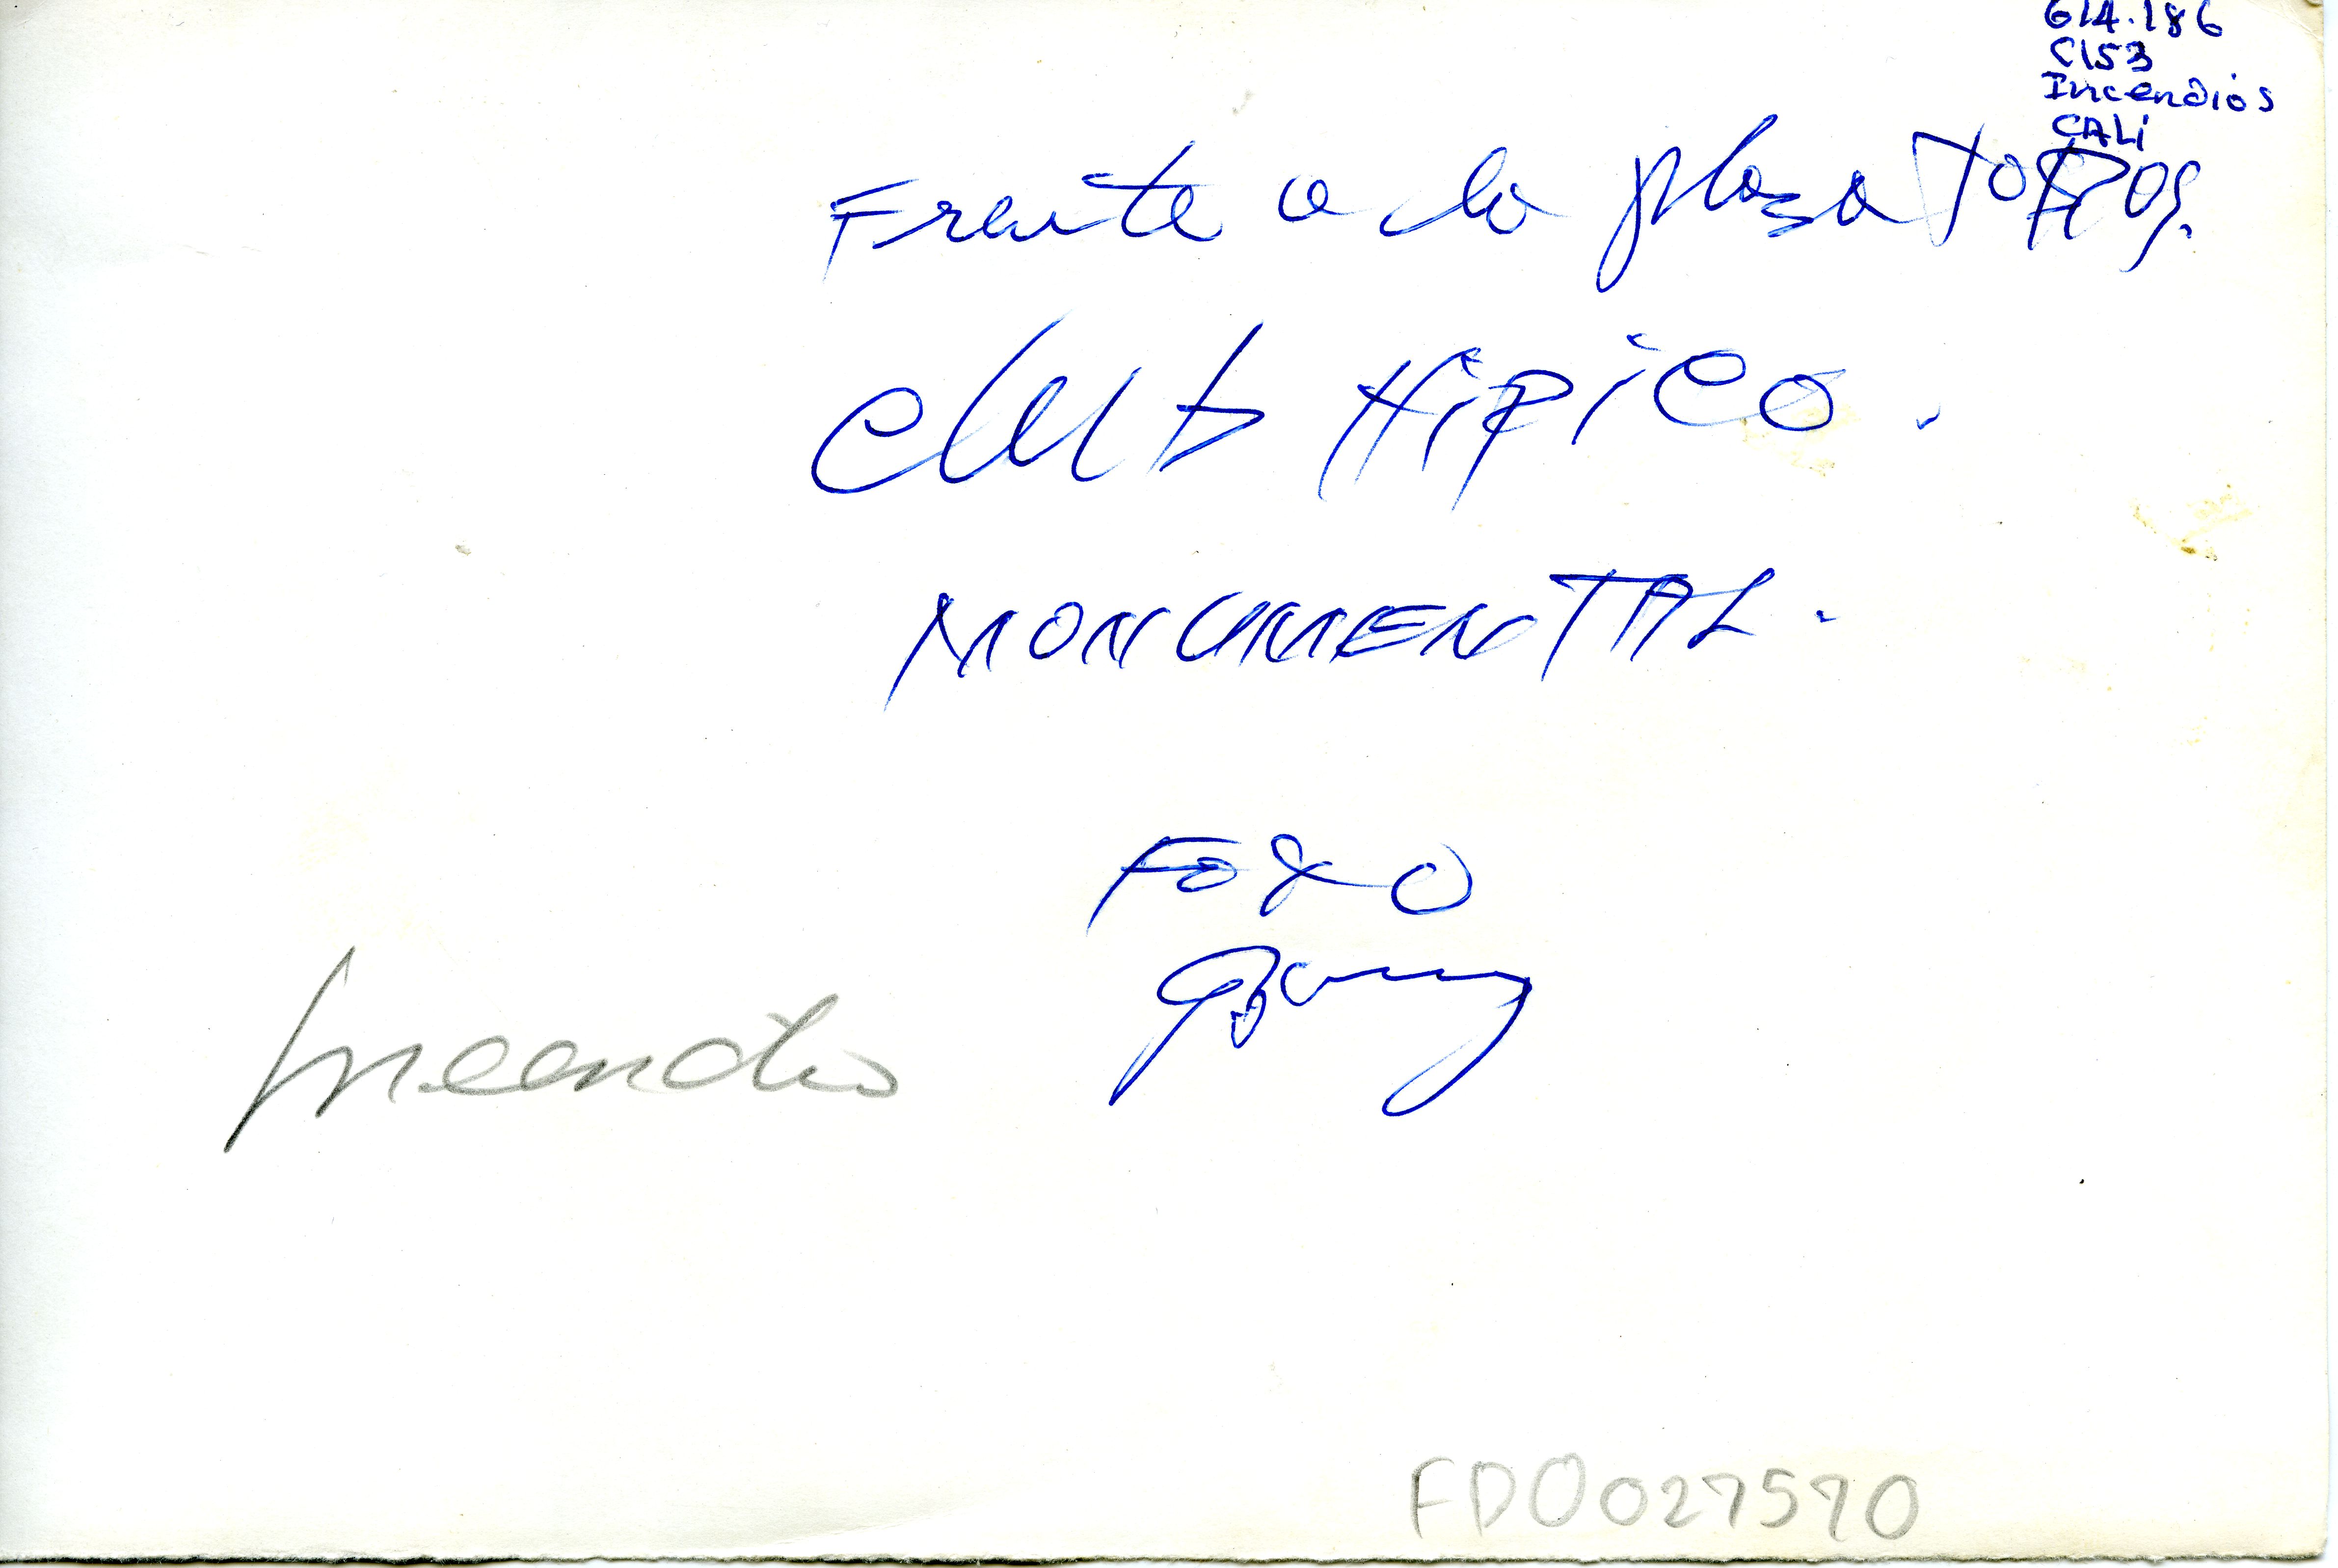 614.186
C153
Incendios
CALi
Frente a la plaza toros.
club Hipico.
MONUMENTAL.
FOTO
Incendio
FD0027570